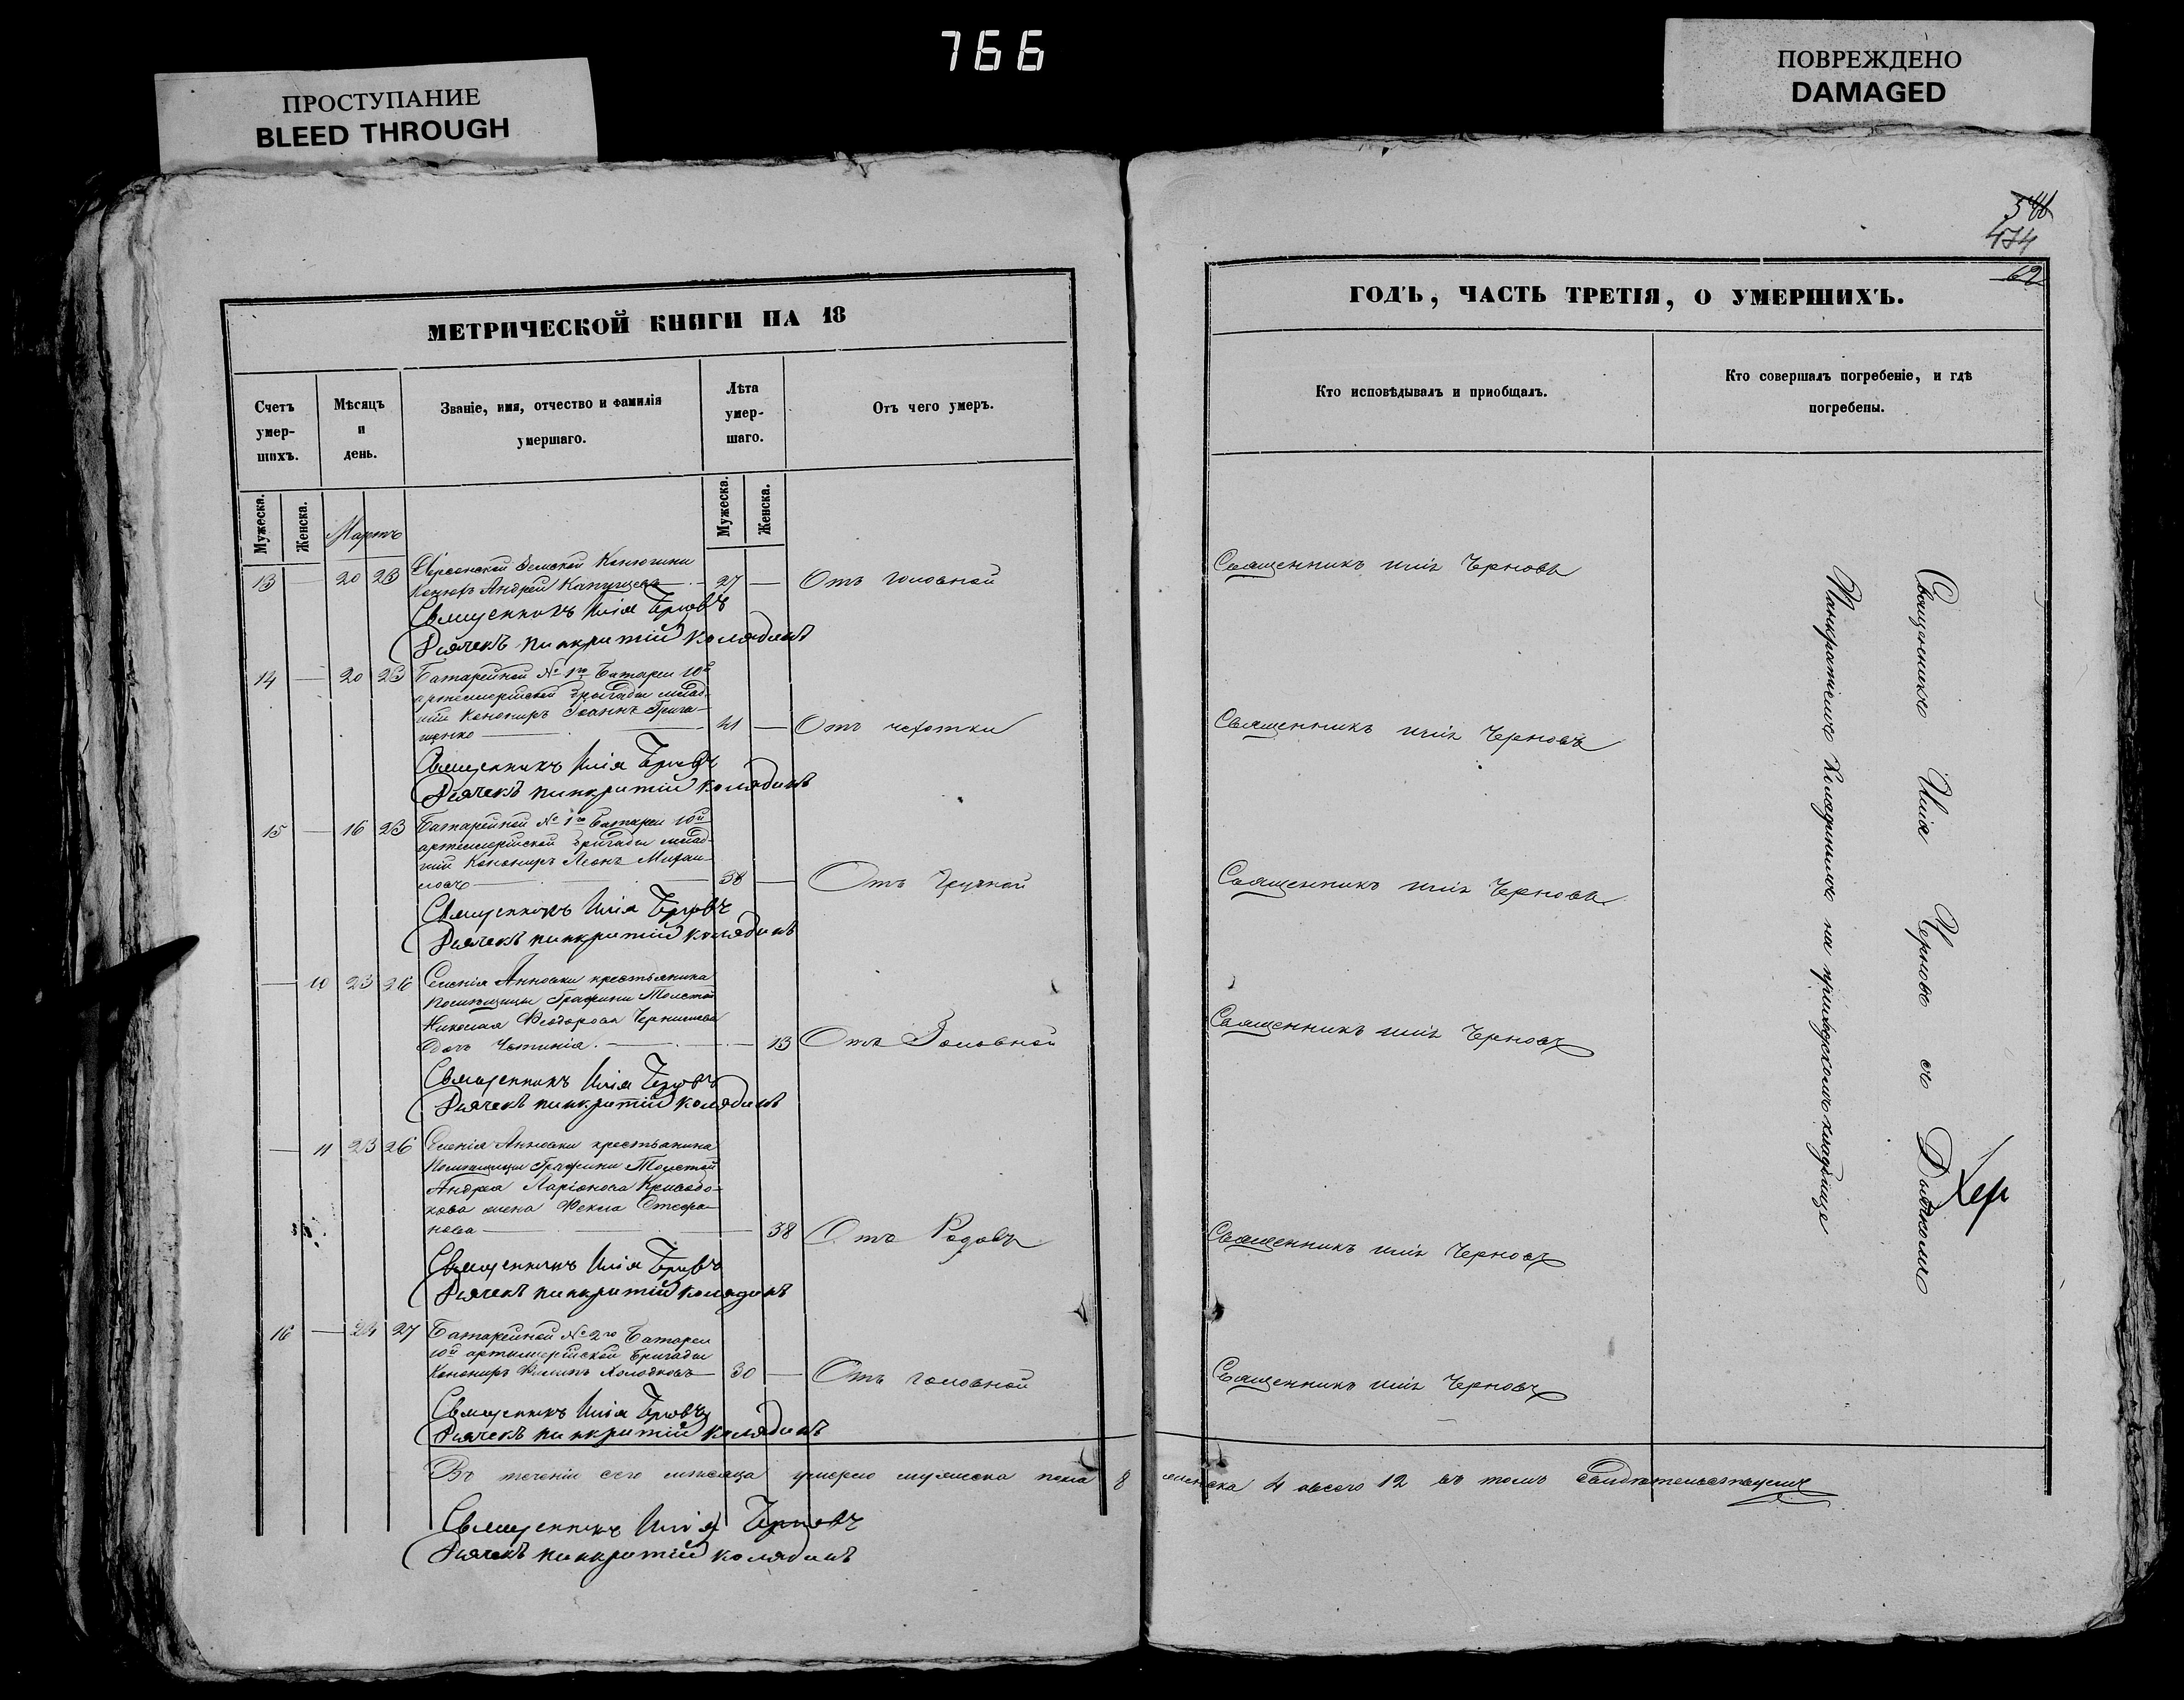 766
ПРОСТУПАНИЕ
BLEED THROUGH
ПОВРЕЖДЕНО
DAMAGED
474
62
МЕТРИЧЕСКОЙ КНИГИ НА 18
Счетъ умер-шихъ.
Мѣсяцъ и день.
Званіе, имя, отчество и фамилія умершаго.
Лѣта умер-шаго.
Отъ чего умеръ.
Мужеска.
Женска.
Мартъ
Мужеска.
Женска.
13 — 20 23 Херсонской Земской Конюшни
Конюхъ Андрей — 27 — Отъ головной
Священникъ Илія Черновъ
Дьячекъ Панкратій Колядинъ
14 — 20 23 Батарейной № 1го Батареи 10й
артиллерійской бригады млад-
шій Канониръ Іоаннъ Грига-
щенко — 41 — Отъ чехотки
Священникъ Илія Черновъ
Дьячекъ Панкратій Колядинъ
15 — 16 23 Батарейной № 1го Батареи 10й
артиллерійской бригады млад-
шій Канониръ Леонъ Михаи-
ловъ — 38 — Отъ Грудной
Священникъ Илія Черновъ
Дьячекъ Панкратій Колядинъ
— 10 23 26 Селенія Анновки крестьянина
Помѣщицы Графини Толстой
Николая Феодорова Чернишева
дочь — 13 Отъ Головной
Священникъ Илія Черновъ
Дьячекъ Панкратій Колядинъ
— 11 23 26 Селенія Анновки крестьянина
Помѣщицы Графини Толстой
Андрея Ларіонова
жена Фекла Стефа-
нова — 38 Отъ Родовъ
Священникъ Илія Черновъ
Дьячекъ Панкратій Колядинъ
16 — 24 27 Батарейной № 2го Батареи
10й артиллерійской бригады
Канониръ Филипъ Холодковъ — 30 — Отъ головной
Священникъ Илія Черновъ
Дьячекъ Панкратій Колядинъ
Въ теченіи сего мѣсяца умерло мужеска пола 8 женска 4 авсего 12 въ томъ свидѣтельствуемъ
Священникъ Илія Черновъ
Дьячекъ Панкратій Колядинъ
ГОДЪ, ЧАСТЬ ТРЕТІЯ, О УМЕРШИХЪ.
Кто исповѣдывалъ и пріобщалъ.
Кто совершалъ погребеніе, и гдѣ
погребены.
Священникъ Илія Черновъ
Священникъ Илія Черновъ
Священникъ Илія Черновъ
Священникъ Илія Черновъ
Священникъ Илія Черновъ
Священникъ Илія Черновъ
Священникъ Илія Черновъ съ Дьячкомъ
Панкратіемъ Колядинымъ на приходскомъ кладбище
Хер